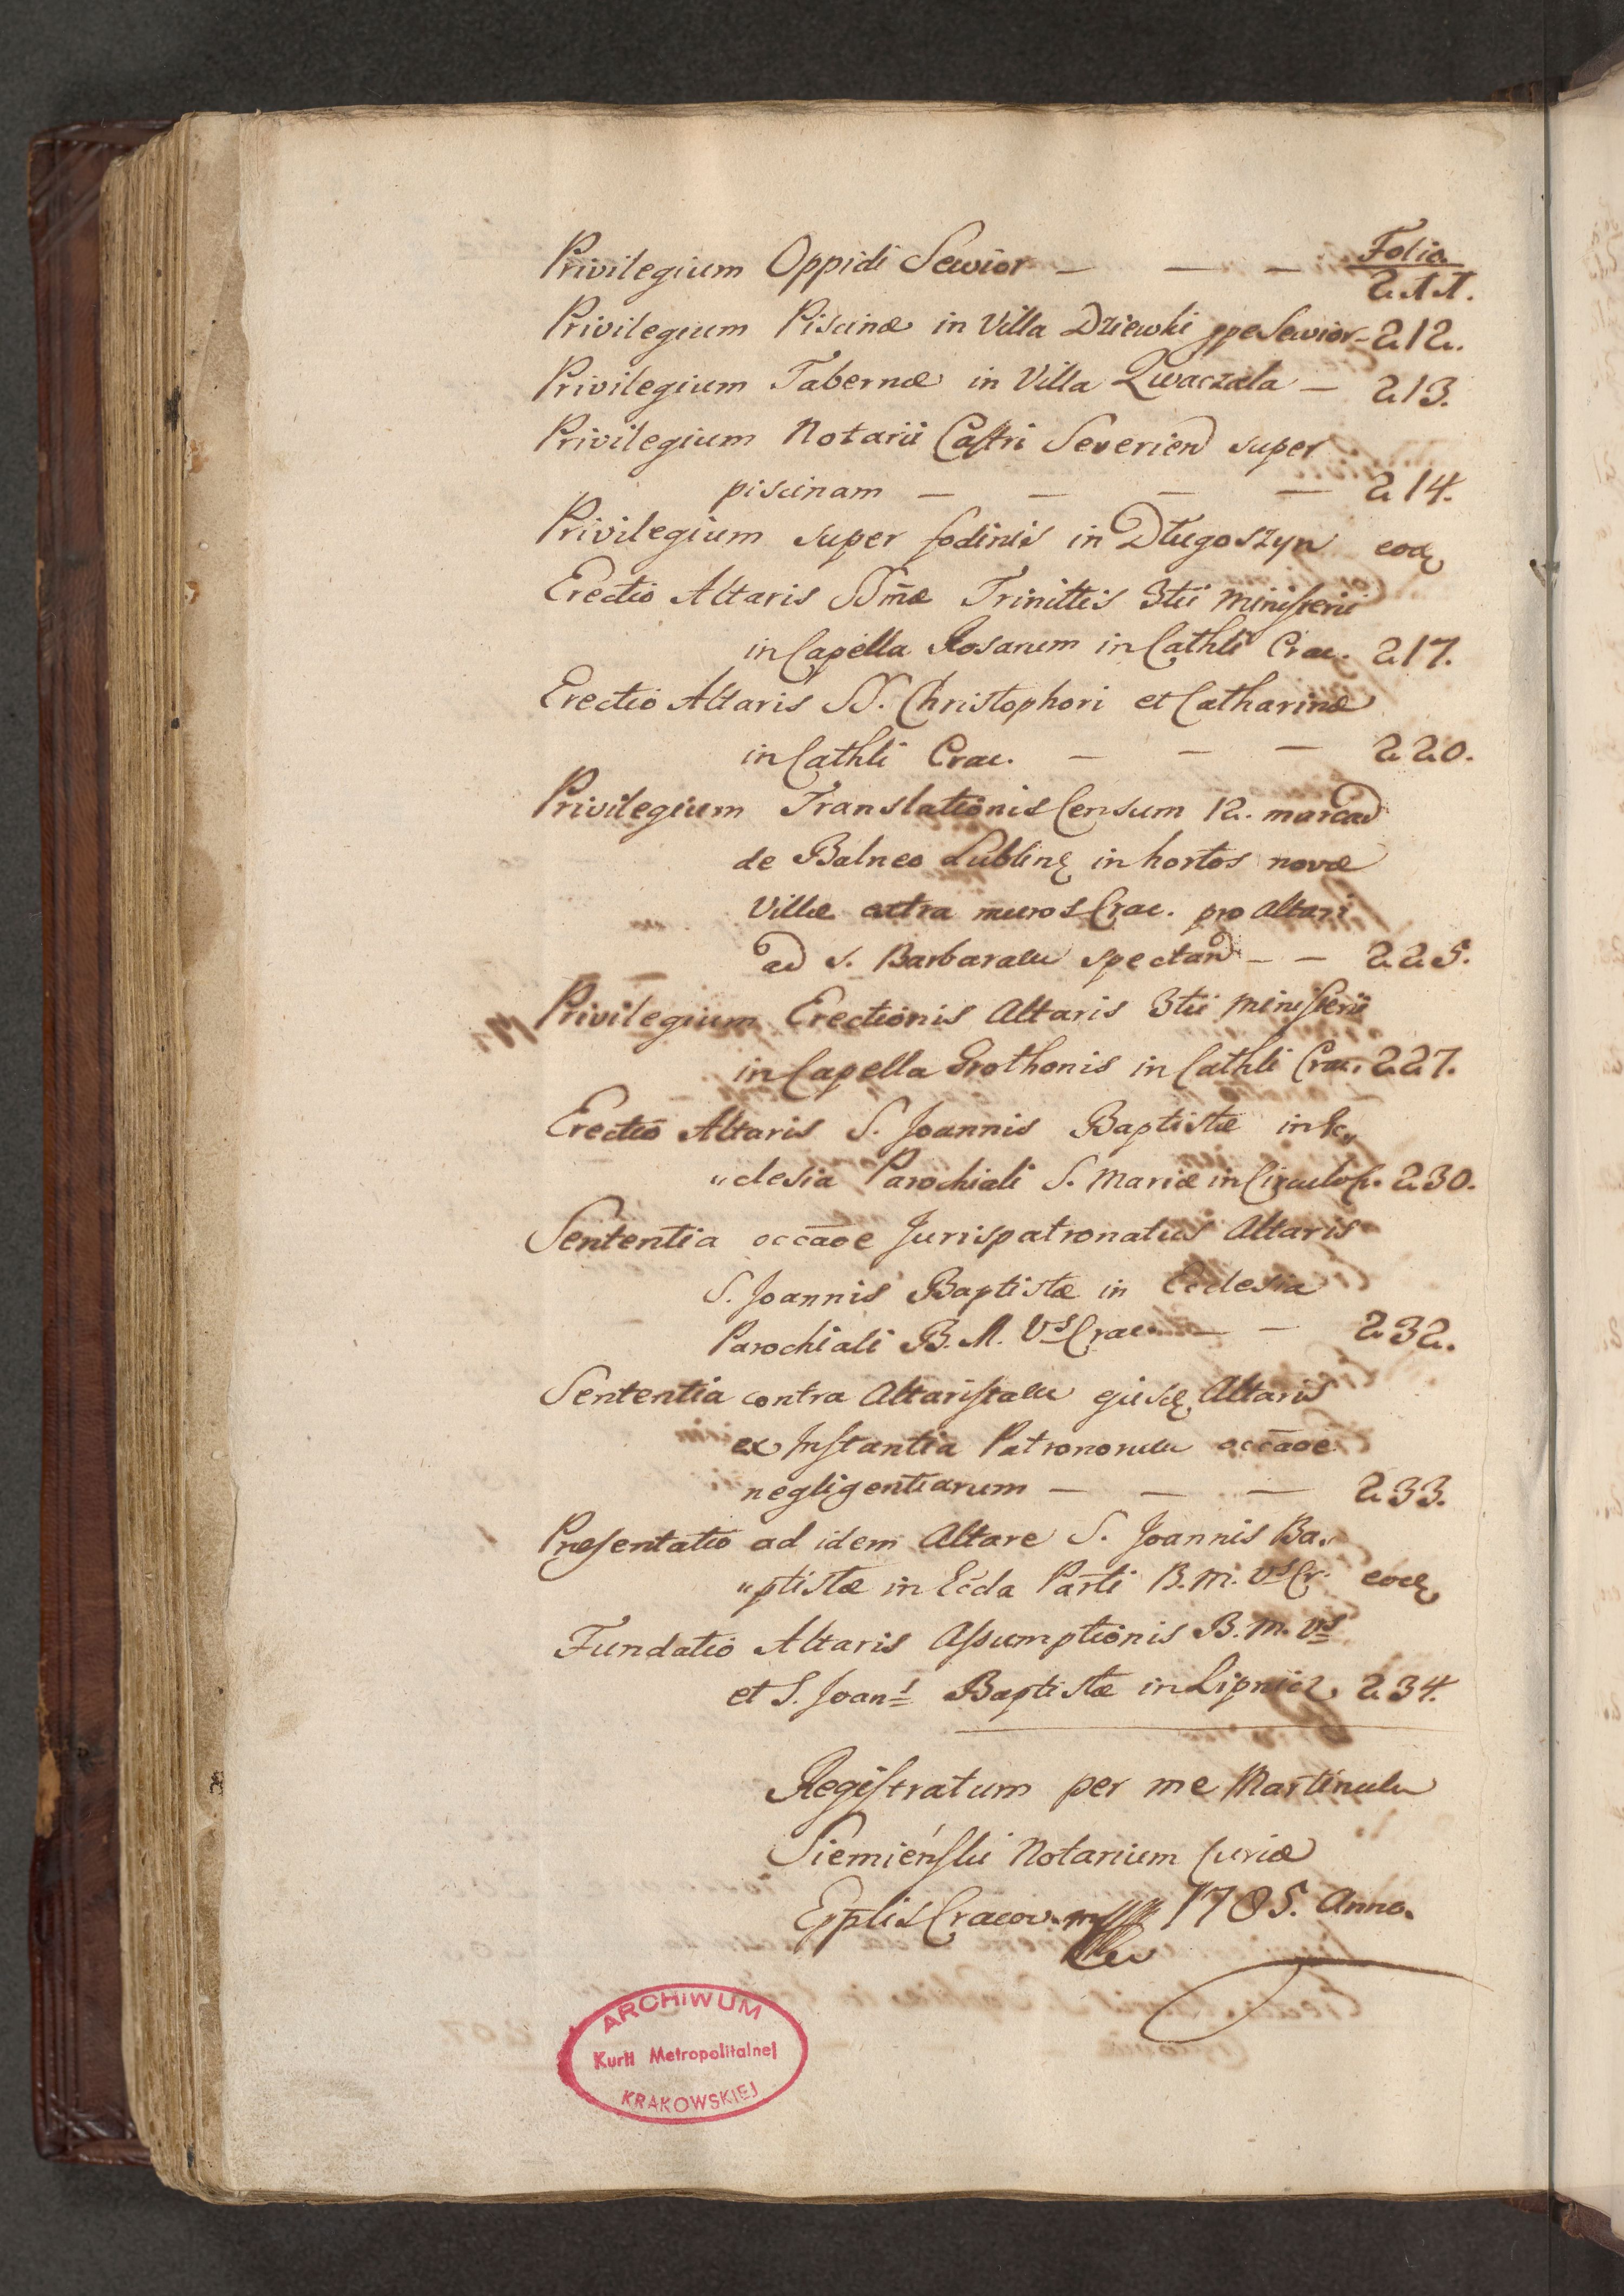 Folio
Privilegium Oppidi Sewior — — — 211.
Privilegium Piscinæ in Villa Dziewki ppe Sewior – 212.
Privilegium Tabernæ in Villa Kwaczala — 213.
Privilegium Notarii Castri Severien super
piscinam — — — — 214.
Privilegium super fodinis in Długoszyn eodę
Erectio Altaris SSmæ Trinittis 3tii Ministerii
in Capella Rosarum in Cathli Crac. 217.
Erectio Altaris SS. Christophori et Catharinæ
in Cathli Crac. — — — 220.
Privilegium Translationis Censum 12. marcar
de Balneo Lublinę in hortos novæ
Villæ extra muros Crac. pro Altari
ad S. Barbaram spectan — — 225.
Privilegium Erectionis Altaris 3tii Ministerii
in Capella Grothonis in Cathli Crac. 227.
Erectio Altaris S. Joannis Baptistæ in Ec„
„clesia Parochiali S. Mariæ in Circulo Cr. 230.
Sententia occaoe Jurispatronatus Altaris
S. Joannis Baptistæ in Ecclesia
Parochiali B. M. Vs Crac. — — 232.
Sententia contra Altaristam ejusdę Altaris
ex Instantia Patronorum occaoe
negligentiarum — — — 233.
Præsentatio ad idem Altare S. Joannis Ba„
„ptistæ in Eccla Parli B. M. Vs Cr. eodę
Fundatio Altaris Assumptionis B. M. Vs
et S. Joans Baptistæ in Lipnicz 234.
Registratum per me Martinum
Siemieński Notarium Curiæ
Epplis Cracov. 1785. Anno.
ARCHIWUM
Kurii Metropolitalnej
KRAKOWSKIEJ